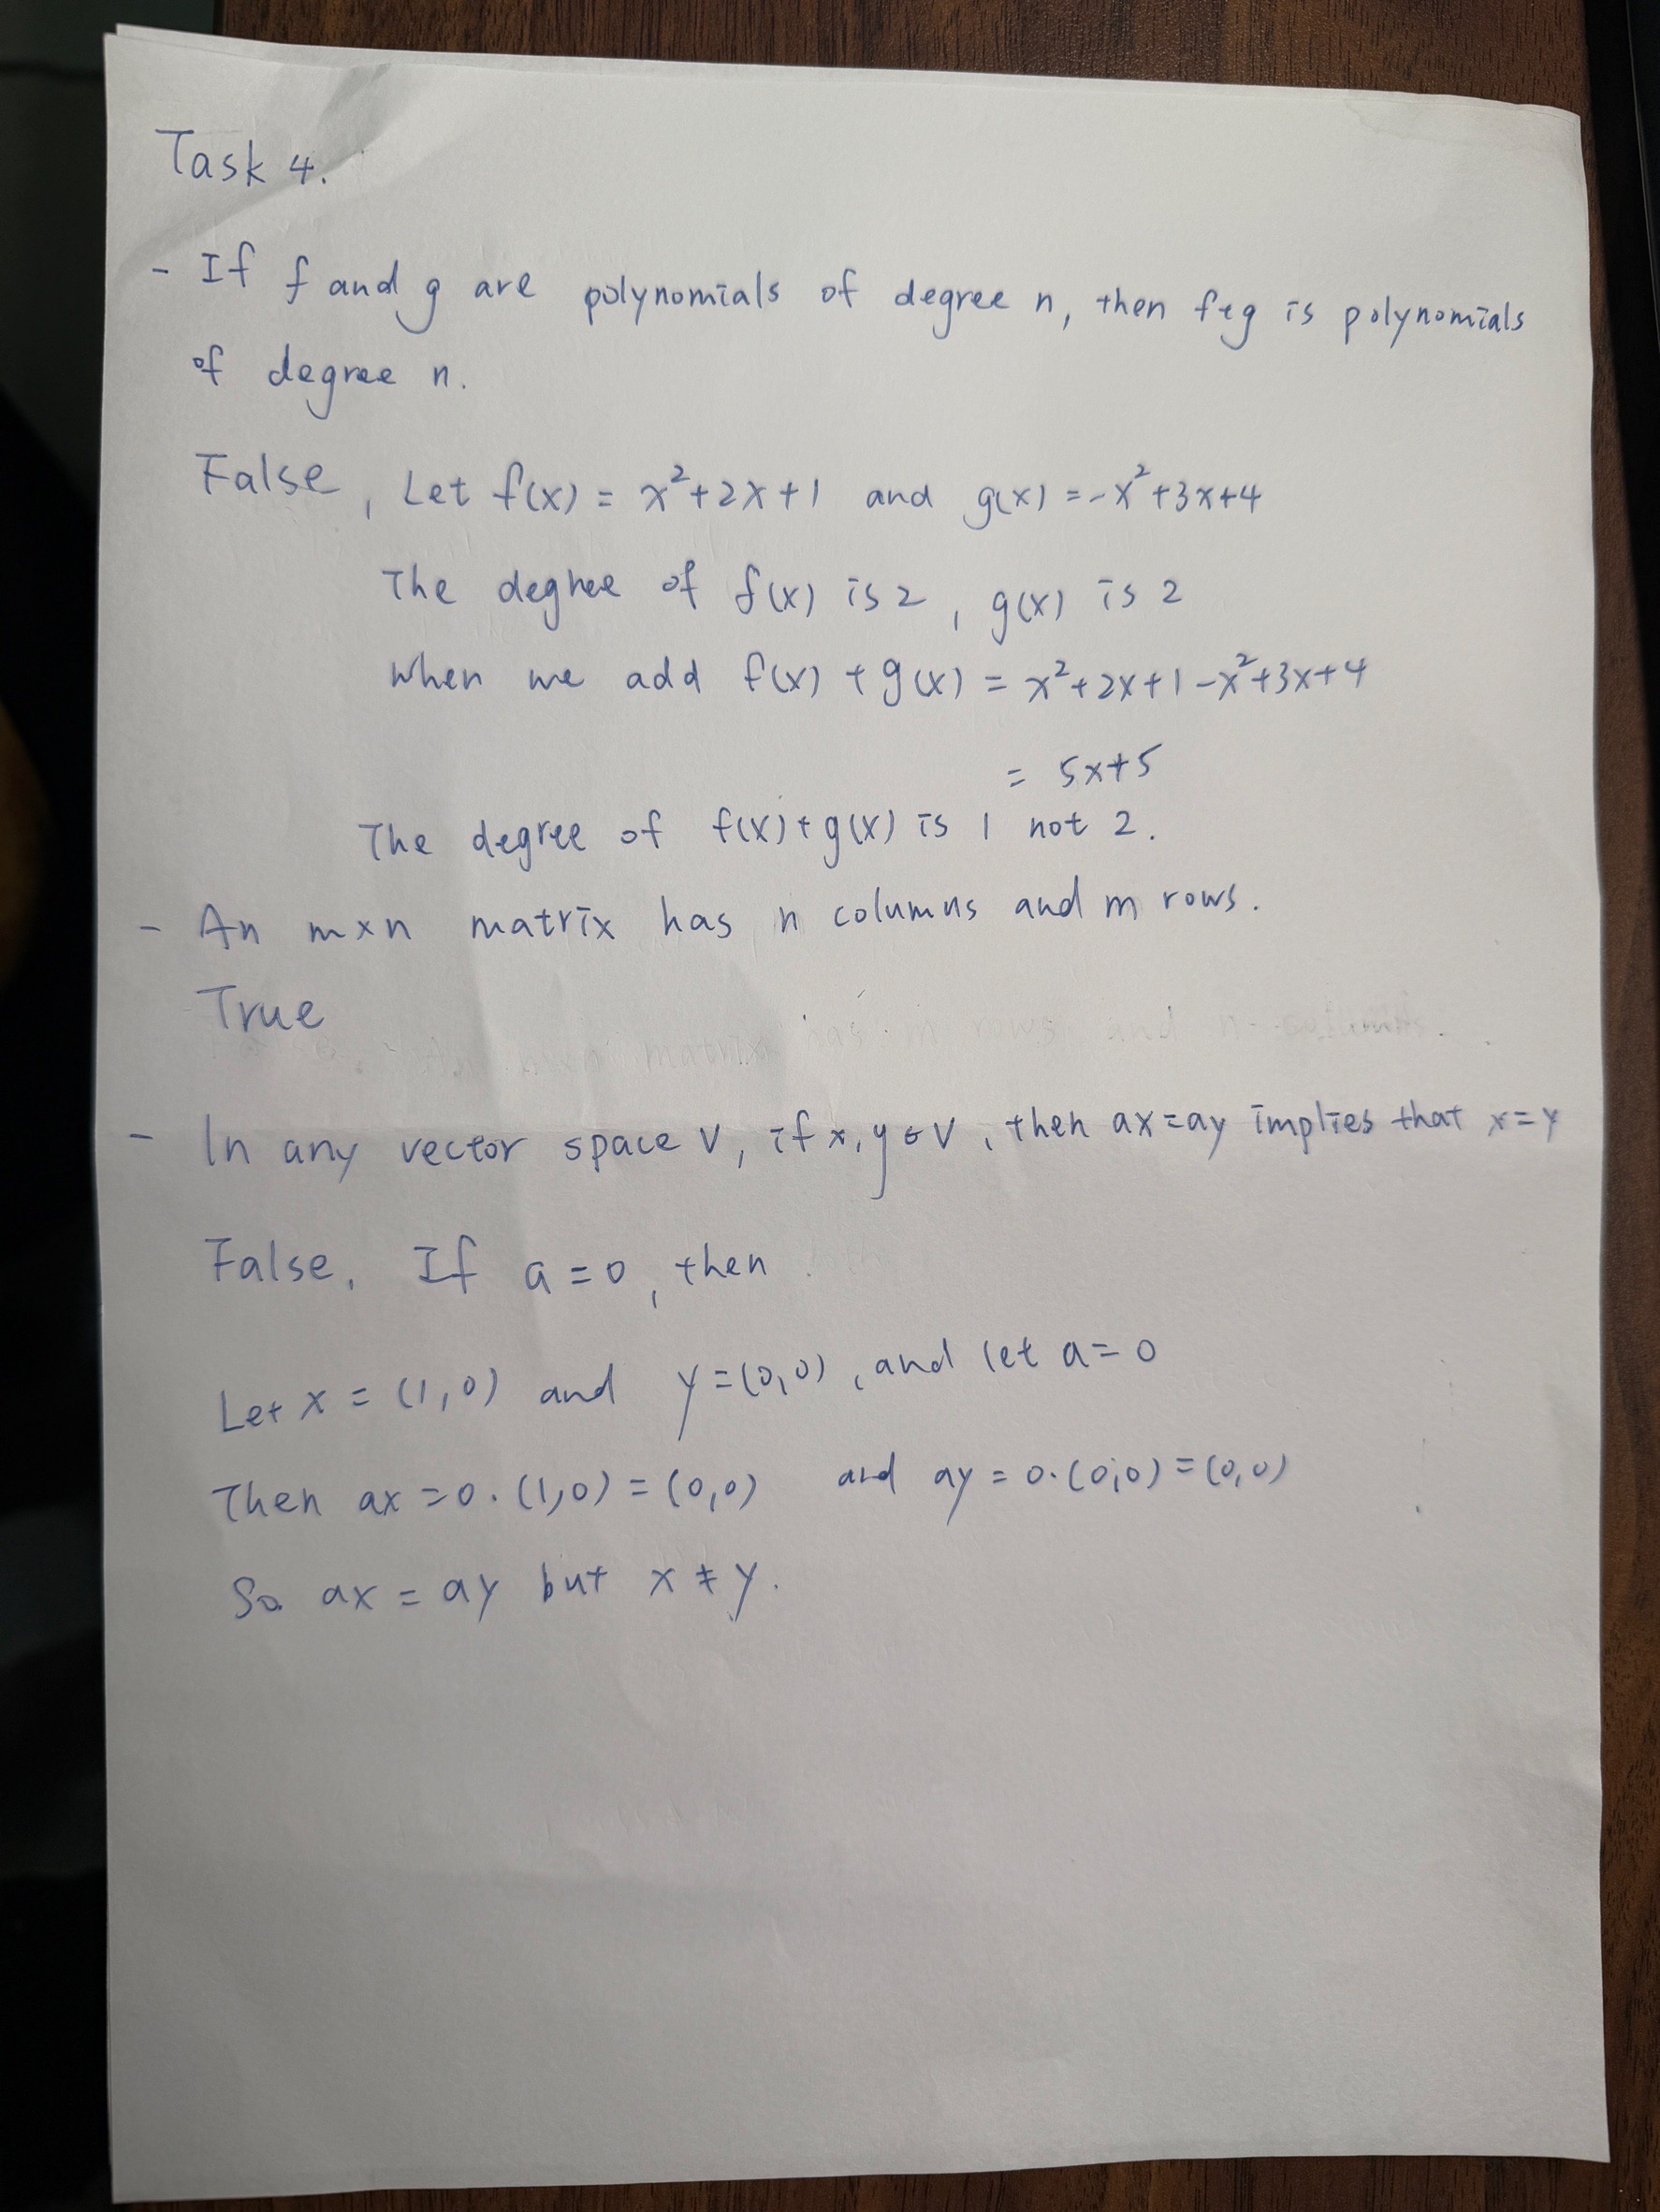 Task 4.
- If f and g are polynomials of degree n, then f+g is polynomials
of degree n.
False, Let f(x) = x²+2x+1 and g(x) = -x²+3x+4
The degree of f(x) is 2, g(x) is 2
When we add f(x) + g(x) = x²+2x+1-x²+3x+4
= 5x+5
The degree of f(x)+g(x) is 1 not 2.
- An m×n matrix has n columns and m rows.
True
An m×n matrix has m rows and n columns.
- In any vector space V, if x,y∈V, then ax=ay implies that x=y
False. If a=0, then
Let x = (1,0) and y=(0,0), and let a=0
Then ax=0·(1,0)=(0,0) and ay=0·(0,0)=(0,0)
So ax = ay but x≠y.